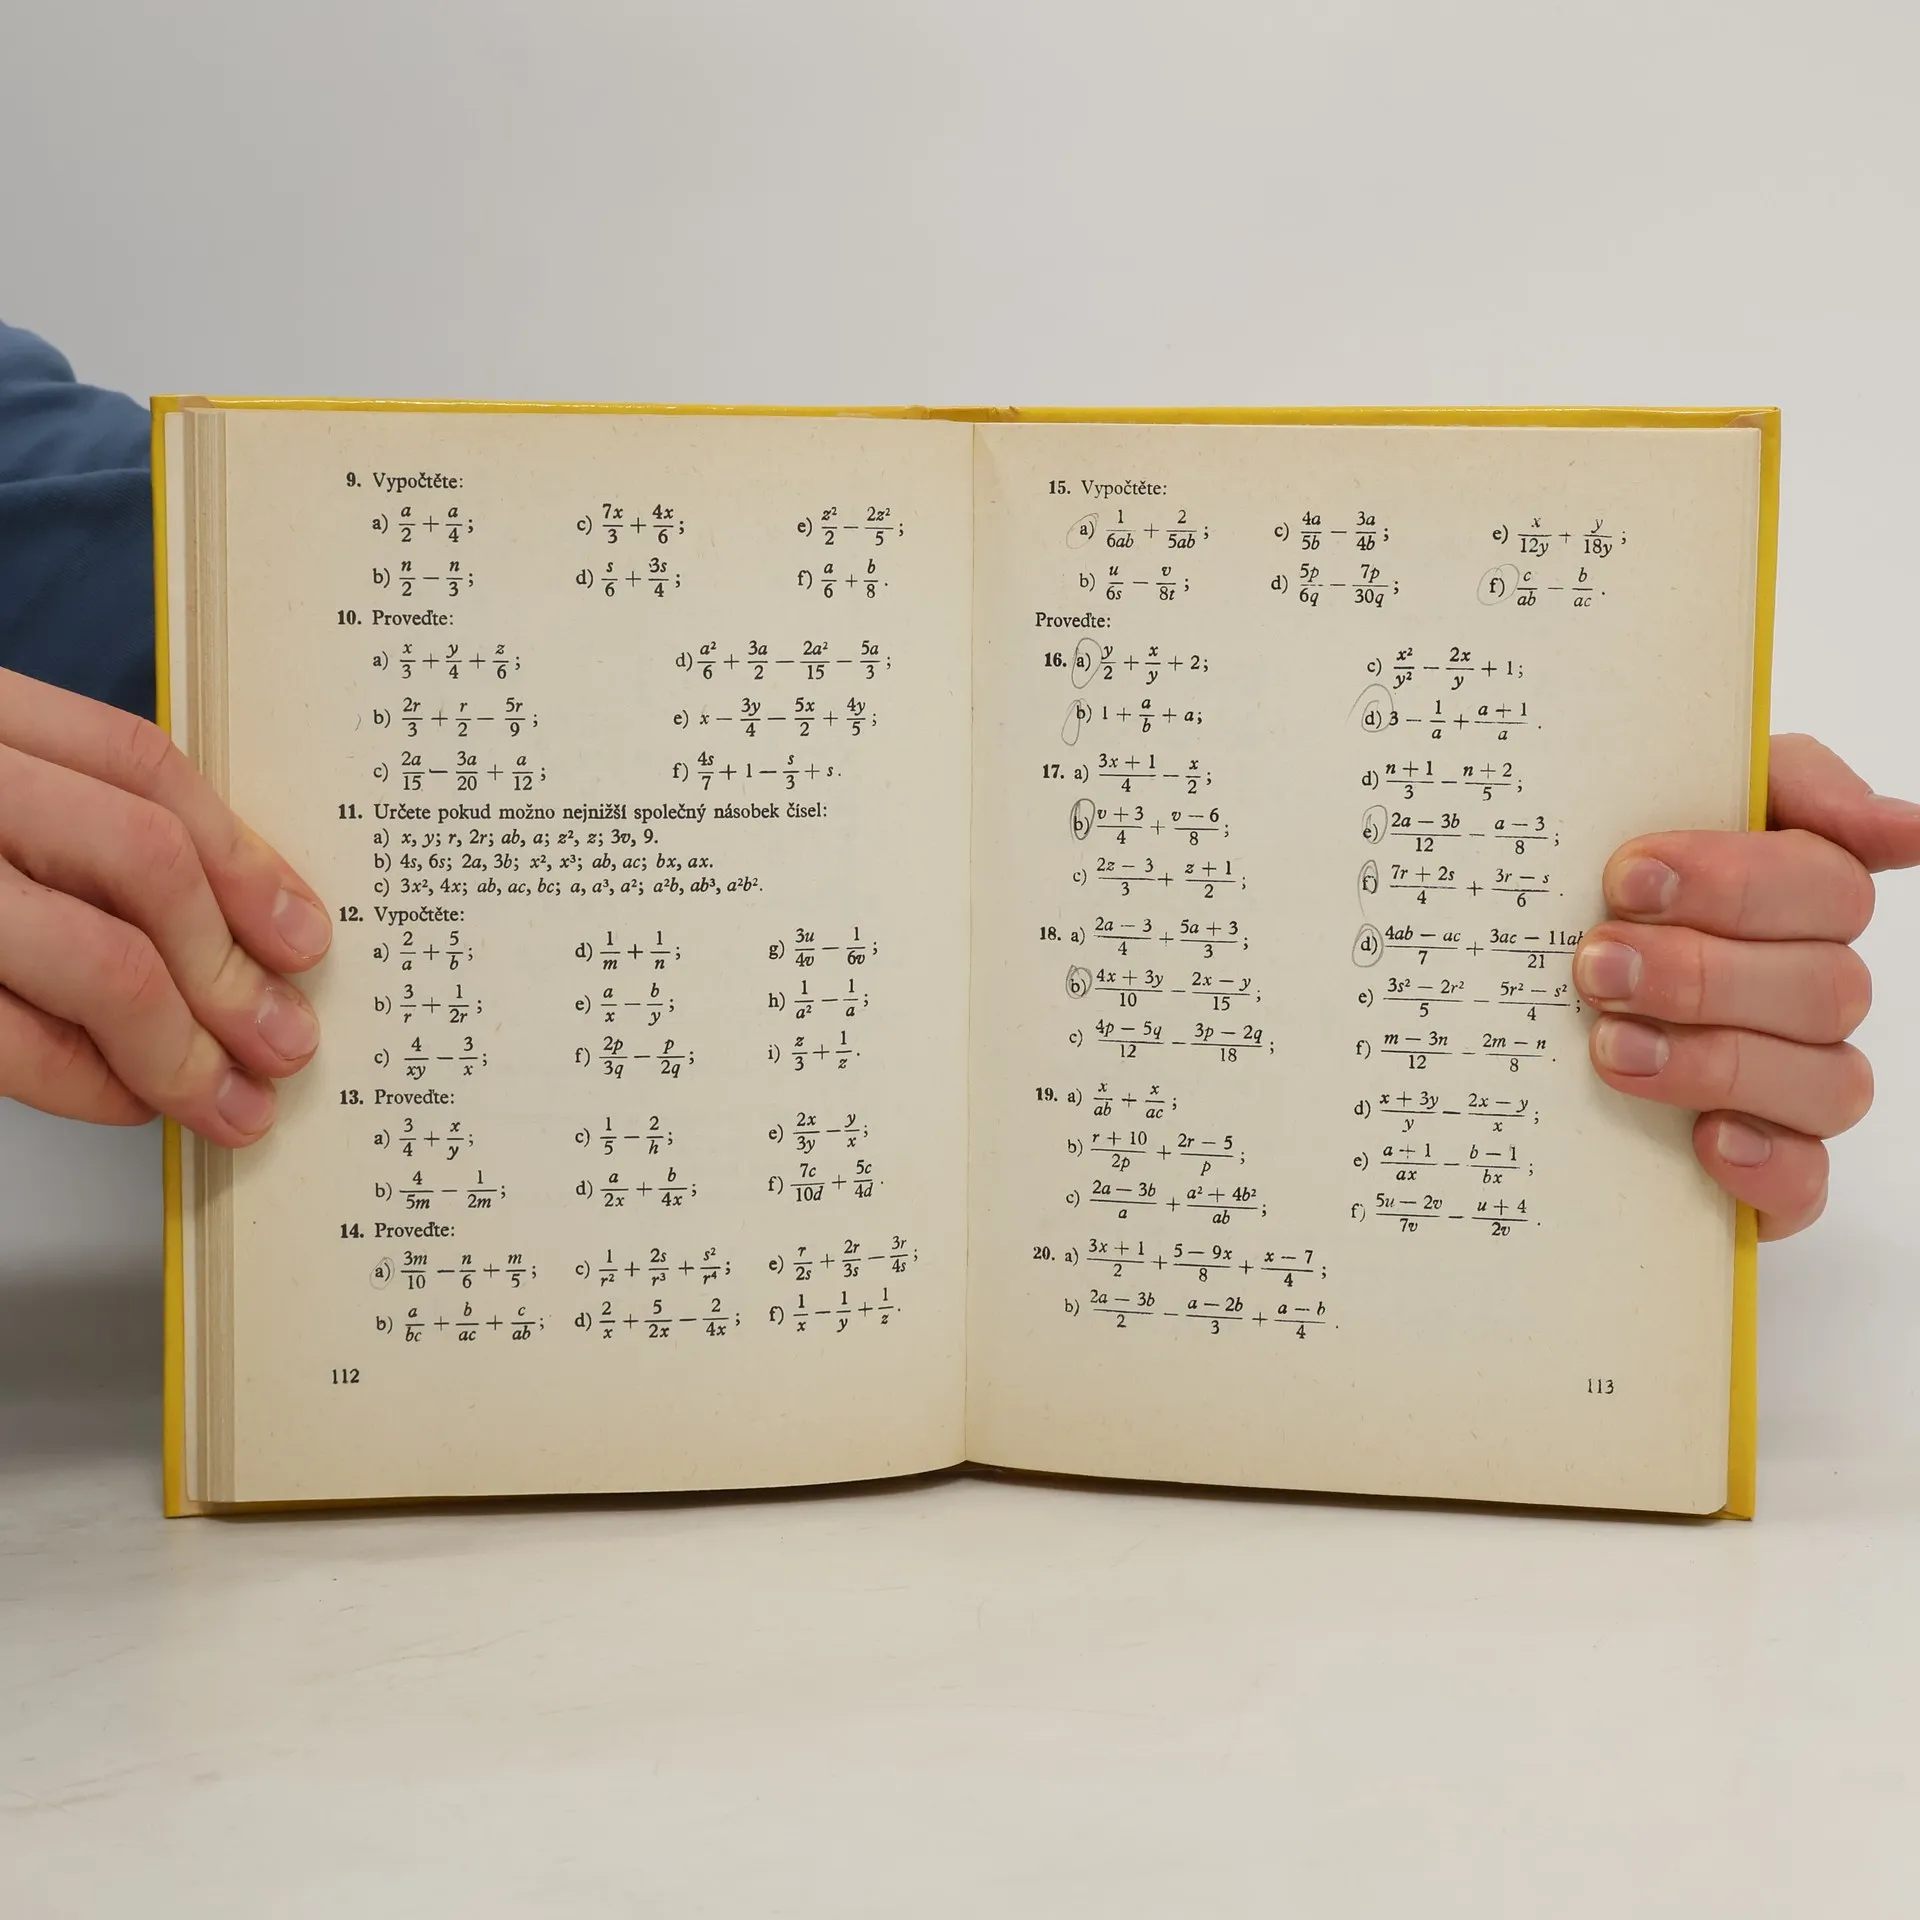 9. Vypočtěte:
a) a/2 + a/4; c) 7x/3 + 4x/6; e) z²/2 − 2z²/5;
b) n/2 − n/3; d) s/6 + 3s/4; f) a/6 + b/8.
10. Proveďte:
a) x/3 + y/4 + z/6; d) a²/6 + 3a/2 − 2a²/15 − 5a/3;
b) 2r/3 + r/2 − 5r/9; e) x − 3y/4 − 5x/2 + 4y/5;
c) 2a/15 − 3a/20 + a/12; f) 4s/7 + 1 − s/3 + s.
11. Určete pokud možno nejnižší společný násobek čísel:
a) x, y; r, 2r; ab, a; z², z; 3v, 9.
b) 4s, 6s; 2a, 3b; x², x³; ab, ac; bx, ax.
c) 3x², 4x; ab, ac, bc; a, a³, a²; a²b, ab³, a²b².
12. Vypočtěte:
a) 2/a + 5/b; d) 1/m + 1/n; g) 3u/4v − 1/6v;
b) 3/r + 1/2r; e) a/x − b/y; h) 1/a² − 1/a;
c) 4/xy − 3/x; f) 2p/3q − p/2q; i) z/3 + 1/z.
13. Proveďte:
a) 3/4 + x/y; c) 1/5 − 2/h; e) 2x/3y − y/x;
b) 4/5m − 1/2m; d) a/2x + b/4x; f) 7c/10d + 5c/4d.
14. Proveďte:
a) 3m/10 − n/6 + m/5; c) 1/r² + 2s/r³ + s²/r⁴; e) r/2s + 2r/3s − 3r/4s;
b) a/bc + b/ac + c/ab; d) 2/x + 5/2x − 2/4x; f) 1/x − 1/y + 1/z.
112
15. Vypočtěte:
a) 1/6ab + 2/5ab; c) 4a/5b − 3a/4b; e) x/12y + y/18y;
b) u/6s − v/8t; d) 5p/6q − 7p/30q; f) c/ab − b/ac.
Proveďte:
16. a) y/2 + x/y + 2; c) x²/y² − 2x/y + 1;
b) 1 + a/b + a; d) 3 − 1/a + (a + 1)/a.
17. a) (3x + 1)/4 − x/2; d) (n + 1)/3 − (n + 2)/5;
b) (v + 3)/4 + (v − 6)/8; e) (2a − 3b)/12 − (a − 3)/8;
c) (2z − 3)/3 + (z + 1)/2; f) (7r + 2s)/4 + (3r − s)/6.
18. a) (2a − 3)/4 + (5a + 3)/3; d) (4ab − ac)/7 + (3ac − 11ab)/21
b) (4x + 3y)/10 − (2x − y)/15; e) (3s² − 2r²)/5 − (5r² − s²)/4;
c) (4p − 5q)/12 − (3p − 2q)/18; f) (m − 3n)/12 − (2m − n)/8.
19. a) x/ab + x/ac; d) (x + 3y)/y − (2x − y)/x;
b) (r + 10)/2p + (2r − 5)/p; e) (a + 1)/ax − (b − 1)/bx;
c) (2a − 3b)/a + (a² + 4b²)/ab; f) (5u − 2v)/7v − (u + 4)/2v.
20. a) (3x + 1)/2 + (5 − 9x)/8 + (x − 7)/4;
b) (2a − 3b)/2 − (a − 2b)/3 + (a − b)/4.
113